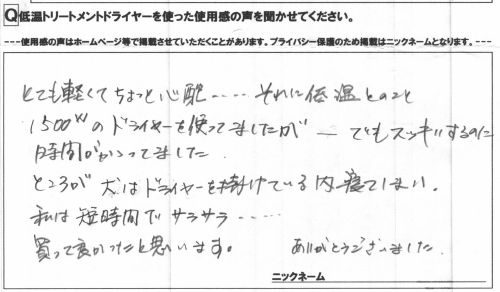 Q低温トリートメントドライヤーを使った使用感の声を聞かせてください。
---使用感の声はホームページ等で掲載させていただくことがあります。プライバシー保護のため掲載はニックネームとなります。---
とても軽くてちょっと心配‥‥ それに低温とのこと
1500Wのドライヤーを使ってましたが ― でもスッキリするのに
時間がかかってました
ところが 犬はドライヤーを掛けている内、寝てしまい、
私は短時間でサラサラ‥‥
買って良かったと思います。 ありがとうございました
ニックネーム